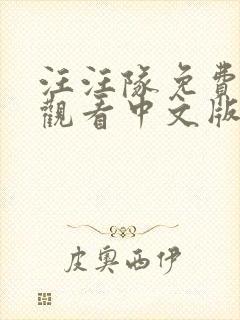 汪汪隊免費
觀看中文版
皮奧西伊